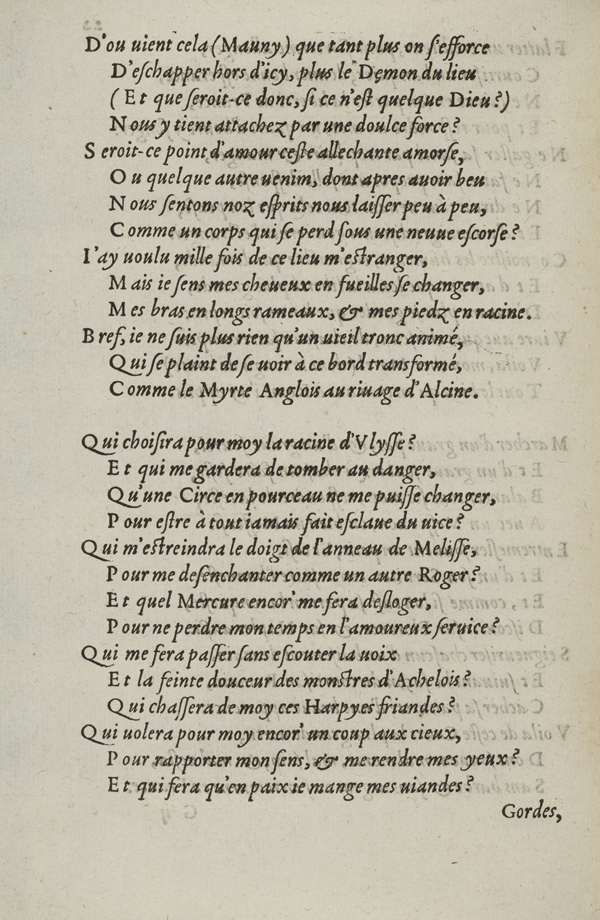 D'ou uient cela (Mauny) que tant plus on s'efforce
D'eschapper hors d'icy, plus le Demon du lieu
(Et que seroit-ce donc, si ce n'est quelque Dieu?)
Nous y tient attachez par une doulce force?
Seroit-ce point d'amour ceste allechante amorse,
Ou quelque autre uenim, dont apres auoir beu
Nous sentons noz esprits nous laisser peu à peu,
Comme un corps qui se perd sous une neuue escorse?
I'ay uoulu mille fois de ce lieu m'estranger,
Mais ie sens mes cheueux en fueilles se changer,
Mes bras en longs rameaux, & mes piedz en racine.
Bref, ie ne suis plus rien qu'un uieil tronc animé,
Qui se plaint de se uoir à ce bord transformé,
Comme le Myrte Anglois au riuage d'Alcine.
Qui choisira pour moy la racine d'Vlysse?
Et qui me gardera de tomber au danger,
Qu'une Circe en pourceau ne me puisse changer,
Pour estre à tout iamais fait esclaue du uice?
Qui m'estreindra le doigt de l'anneau de Melisse,
Pour me desenchanter comme un autre Roger?
Et quel Mercure encor' me fera desloger,
Pour ne perdre mon temps en l'amoureux seruice?
Qui me fera passer sans escouter la uoix
Et la feinte douceur des monstres d'Achelois?
Qui chassera de moy ces Harpyes friandes?
Qui uolera pour moy encor' un coup aux cieux,
Pour rapporter mon sens, & me rendre mes yeux?
Et qui fera qu'en paix ie mange mes uiandes?
Gordes,